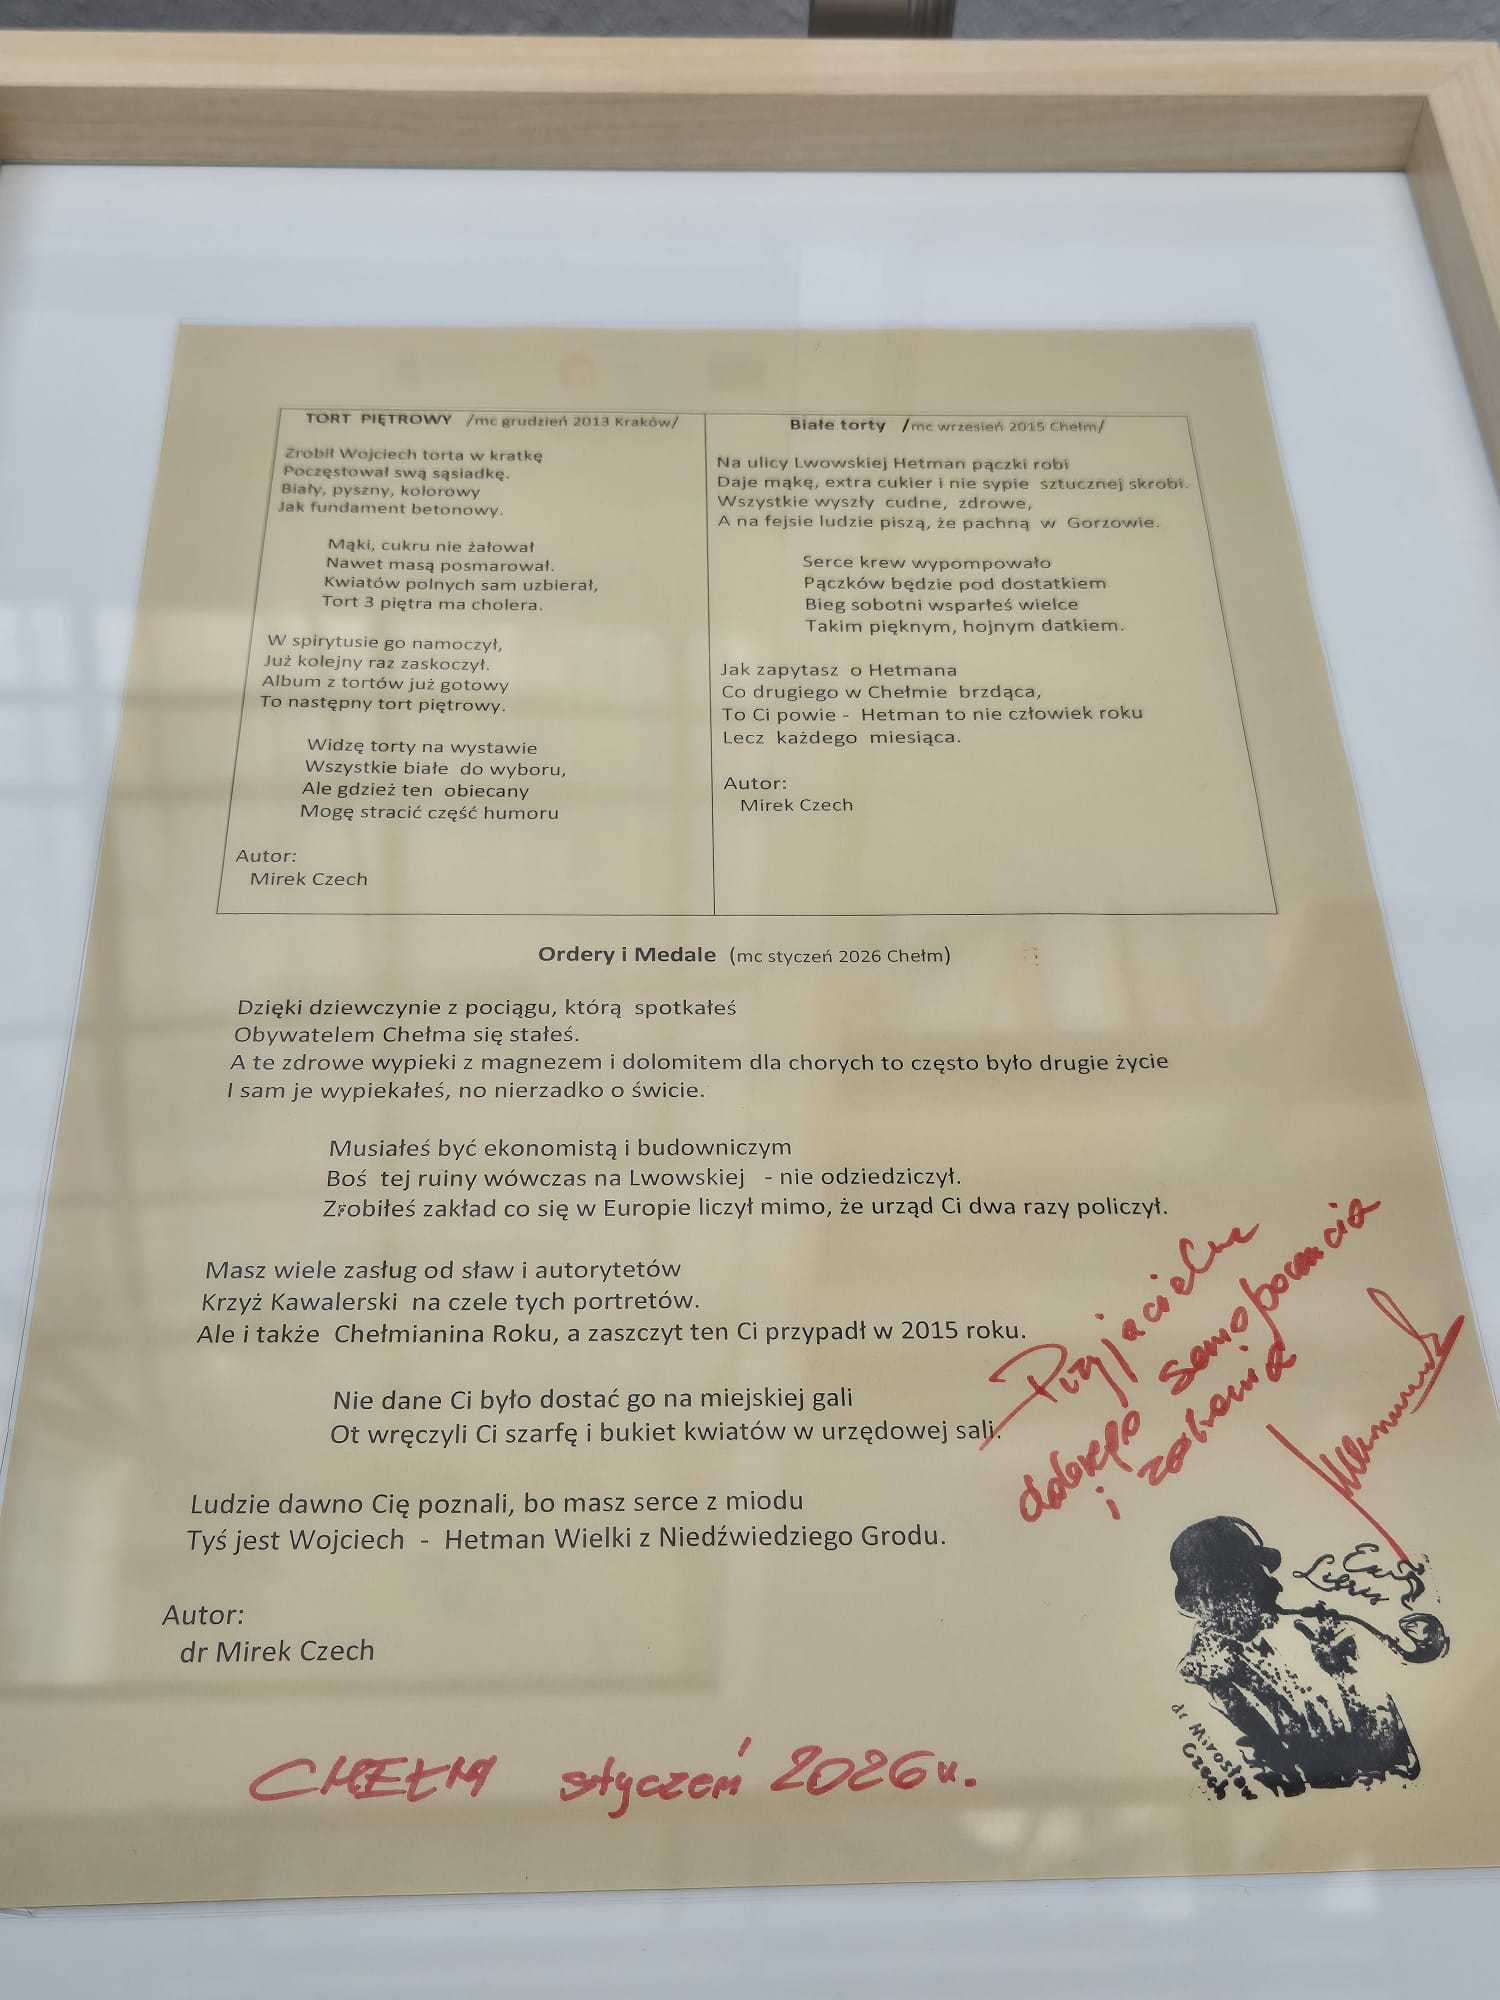 TORT PIĘTROWY /mc grudzień 2013 Kraków/
Zrobił Wojciech torta w kratkę
Poczęstował swą sąsiadkę.
Biały, pyszny, kolorowy
Jak fundament betonowy.
Mąki, cukru nie żałował
Nawet masą posmarował.
Kwiatów polnych sam uzbierał,
Tort 3 piętra ma cholera.
W spirytusie go namoczył,
Już kolejny raz zaskoczył.
Album z tortów już gotowy
To następny tort piętrowy.
Widzę torty na wystawie
Wszystkie białe do wyboru,
Ale gdzież ten obiecany
Mogę stracić część humoru
Autor:
Mirek Czech
Białe torty /mc wrzesień 2015 Chełm/
Na ulicy Lwowskiej Hetman pączki robi
Daje mąkę, extra cukier i nie sypie sztucznej skrobi.
Wszystkie wyszły cudne, zdrowe,
A na fejsie ludzie piszą, że pachną w Gorzowie.
Serce krew wypompowało
Pączków będzie pod dostatkiem
Bieg sobotni wsparłeś wielce
Takim pięknym, hojnym datkiem.
Jak zapytasz o Hetmana
Co drugiego w Chełmie brzdąca,
To Ci powie - Hetman to nie człowiek roku
Lecz każdego miesiąca.
Autor:
Mirek Czech
Ordery i Medale (mc styczeń 2026 Chełm)
Dzięki dziewczynie z pociągu, którą spotkałeś
Obywatelem Chełma się stałeś.
A te zdrowe wypieki z magnezem i dolomitem dla chorych to często było drugie życie
I sam je wypiekałeś, no nierzadko o świcie.
Musiałeś być ekonomistą i budowniczym
Boś tej ruiny wówczas na Lwowskiej - nie odziedziczył.
Zrobiłeś zakład co się w Europie liczył mimo, że urząd Ci dwa razy policzył.
Masz wiele zasług od sław i autorytetów
Krzyż Kawalerski na czele tych portretów.
Ale i także Chełmianina Roku, a zaszczyt ten Ci przypadł w 2015 roku.
Nie dane Ci było dostać go na miejskiej gali
Ot wręczyli Ci szarfę i bukiet kwiatów w urzędowej sali.
Ludzie dawno Cię poznali, bo masz serce z miodu
Tyś jest Wojciech - Hetman Wielki z Niedźwiedziego Grodu.
Autor:
dr Mirek Czech
Przyjacielu
dobrego samopoczucia
i zdrowia
dr Mirosław
Czech
CHEŁM styczeń 2026 r.